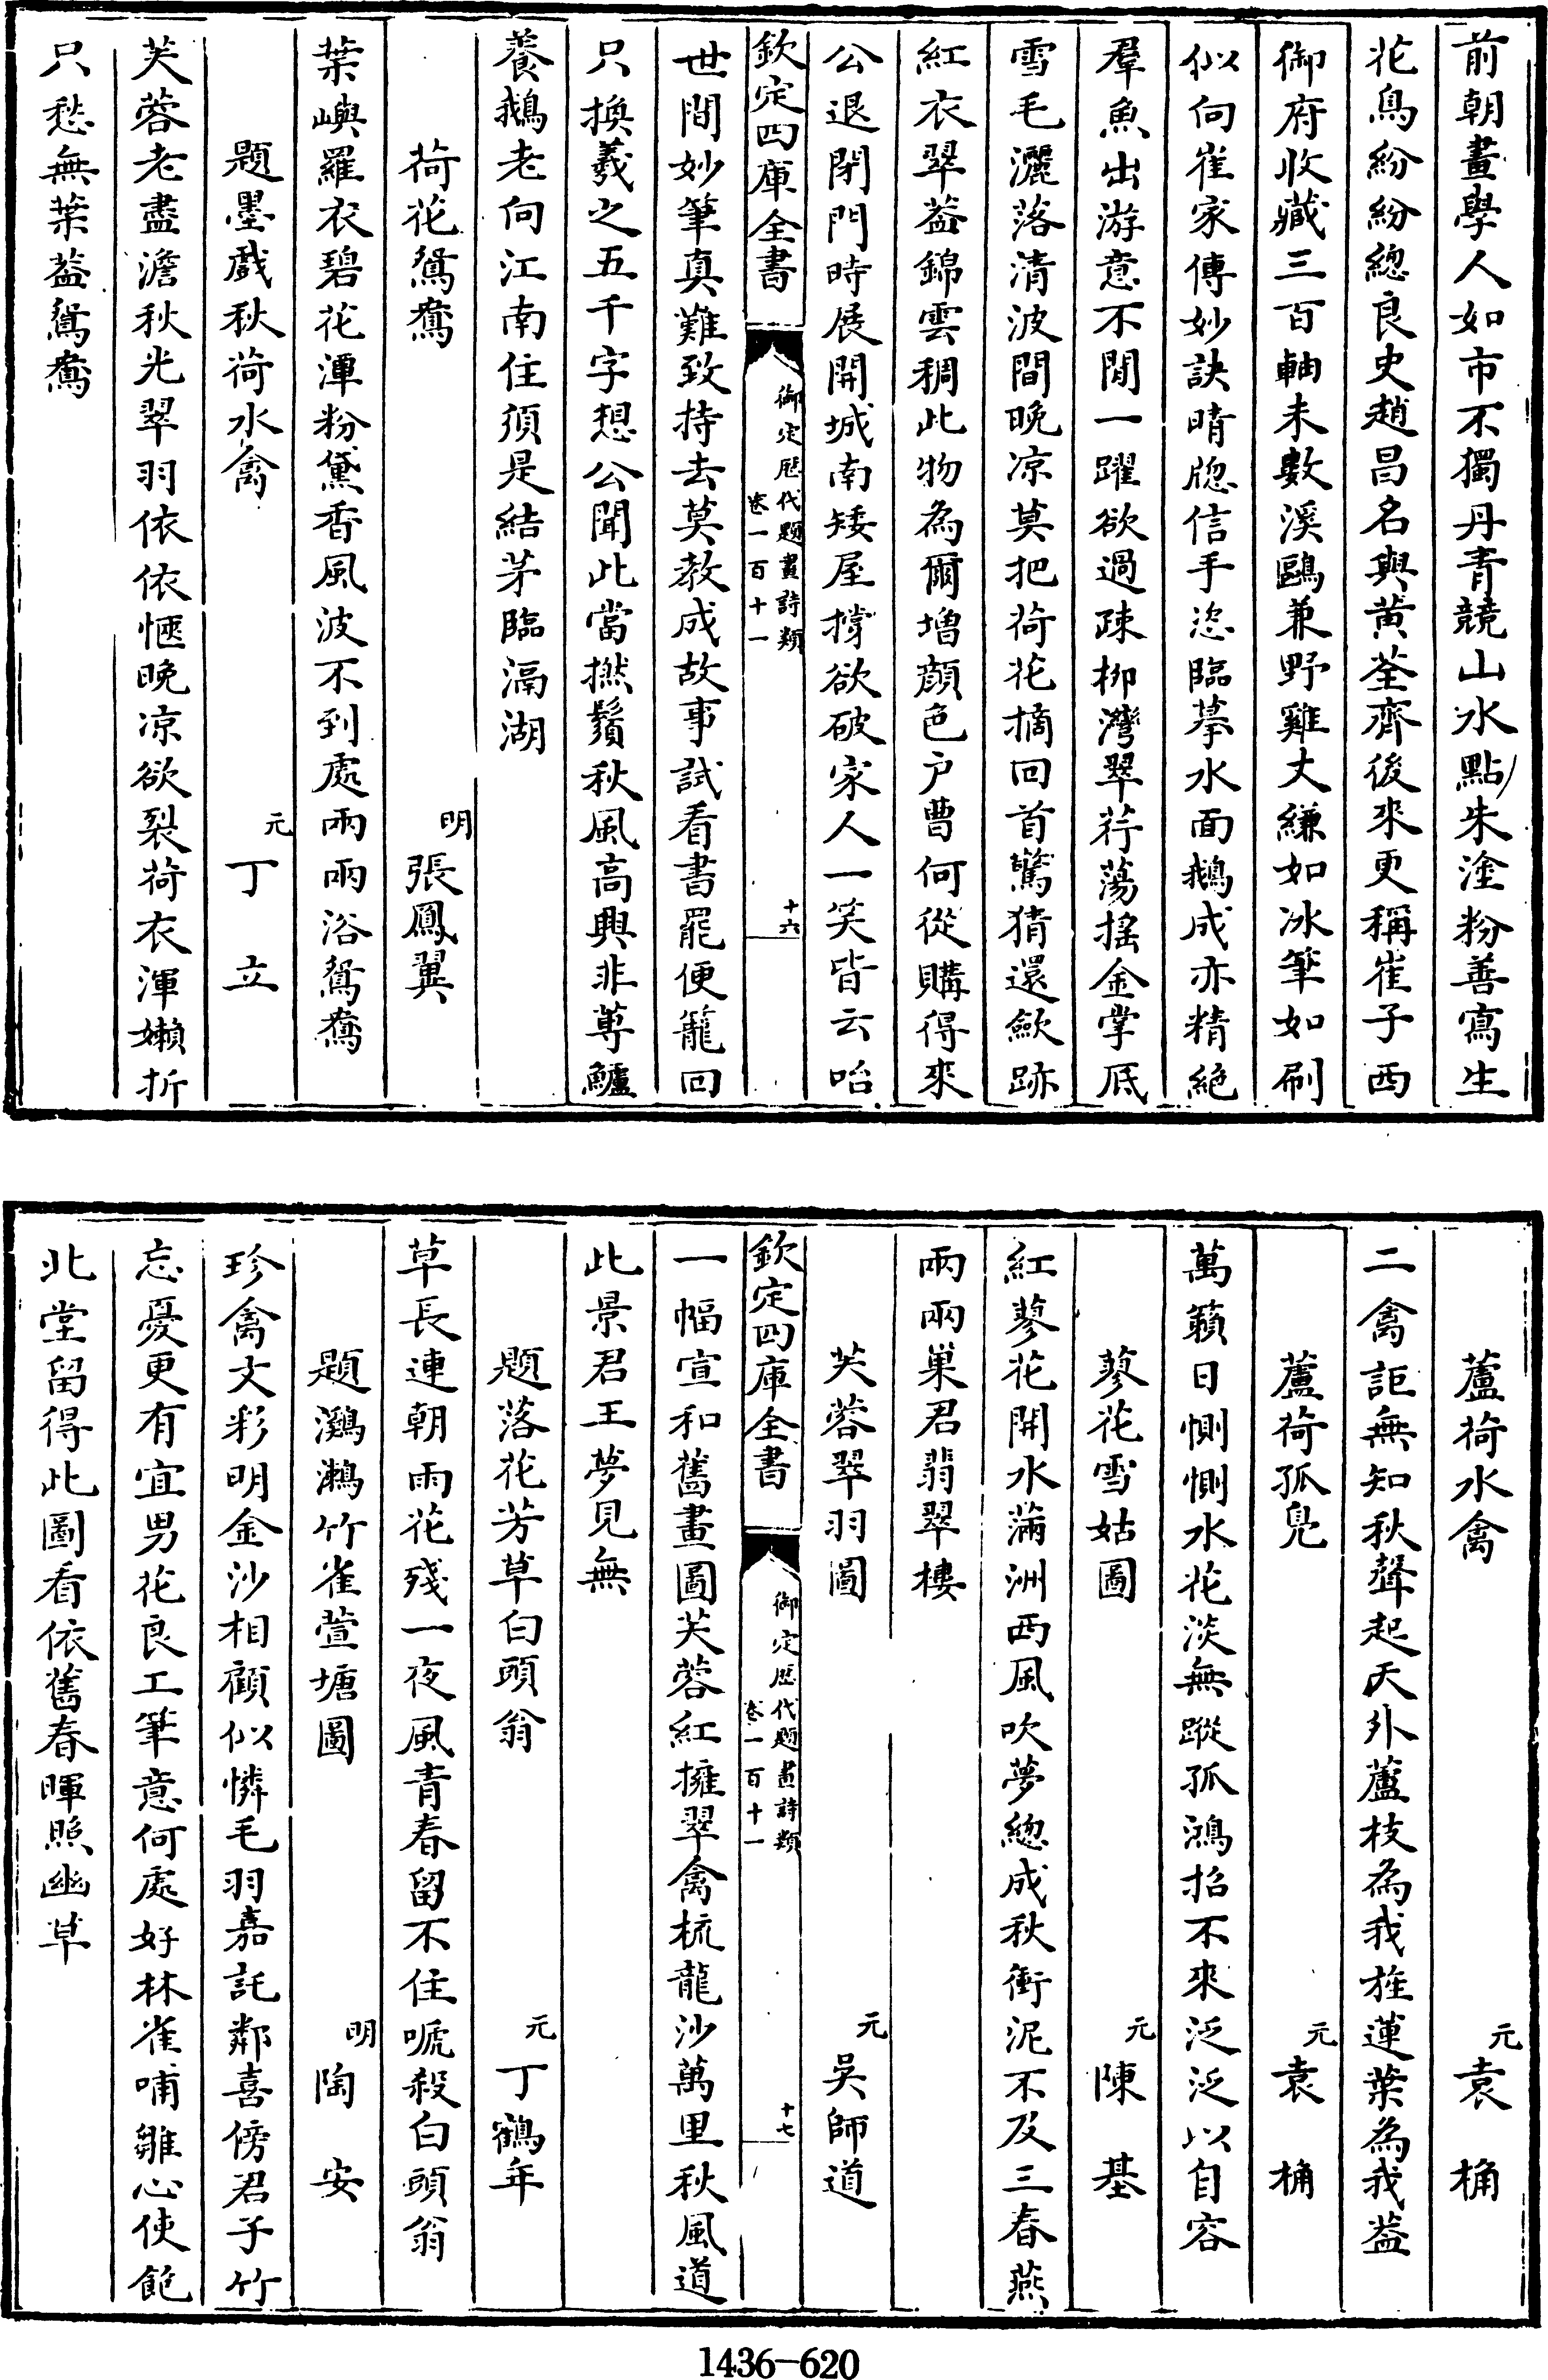 前朝畫學人如市不獨丹青競山水點朱塗粉善寫生
花鳥紛紛總良史趙昌名與黄荃齊後來更稱崔子西
御府收藏三百軸未數溪鷗兼野雞大縑如冰筆如刷
似向崔家傳妙訣晴牕信手恣臨摹水面鵝成亦精絶
羣魚出游意不閒一躍欲過疎柳灣翠荇蕩揺金掌底
雪毛灑落清波間晚凉莫把荷花摘回首驚猜還歛跡
紅衣翠葢錦雲稠此物為爾增顔色户曹何從購得來
公退閉門時展開城南矮屋撐欲破家人一笑皆云咍
欽定四庫全書
御定歴代題畫詩類
卷一百十一
十六
世間妙筆真難致持去莫教成故事試看書罷便籠回
只換羲之五千字想公聞此當撚鬚秋風高興非蓴鱸
養鵝老向江南住須是結茅臨滆湖
荷花鴛鴦
明
張鳳翼
葉嶼羅衣碧花潭粉黛香風波不到處兩兩浴鴛鴦
題墨戲秋荷水禽
元
丁立
芙蓉老盡澹秋光翠羽依依愜晚凉欲裂荷衣渾嬾折
只愁無葉葢鴛鴦
蘆荷水禽
元
袁桷
二禽詎無知秋聲起天外蘆枝為我旌蓮葉為我葢
蘆荷孤鳬
元
袁桷
萬籟日惻惻水花淡無蹤孤鴻招不來泛泛以自容
蓼花雪姑圖
元
陳基
紅蓼花開水滿洲西風吹夢總成秋銜泥不及三春燕
兩兩巢君翡翠樓
芙蓉翠羽圖
元
吳師道
欽定四庫全書
御定歴代題畫詩類
卷一百十一
十七
一幅宣和舊畫圖芙蓉紅擁翠禽梳龍沙萬里秋風道
此景君王夢見無
題落花芳草白頭翁
元
丁鶴年
草長連朝雨花殘一夜風青春留不住嗁殺白頭翁
題鸂鷘竹雀萱塘圖
明
陶安
珍禽文彩明金沙相顧似憐毛羽嘉託鄰喜傍君子竹
忘憂更有宜男花良工筆意何處好林雀哺雛心使飽
北堂留得此圖看依舊春暉照幽草
1436-620